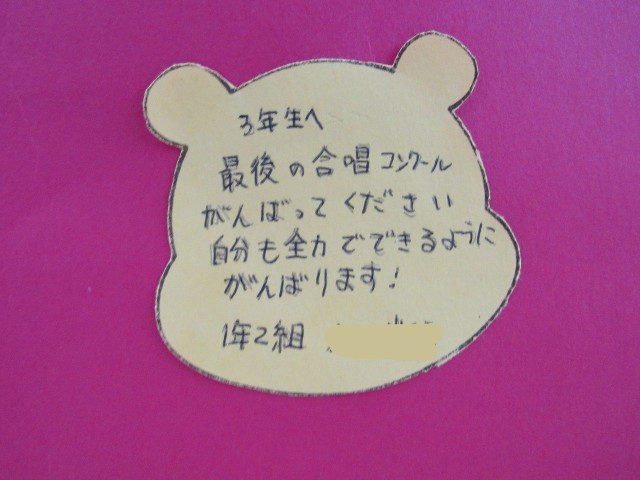 3年生へ
最後の合唱コンクール
がんばってください
自分も全力でできるように
がんばります!
1年2組